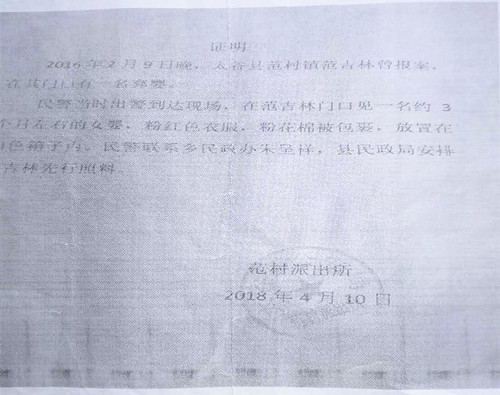 证明
2016年2月9日晚，太谷县范村镇范吉林曾报案，
在其门口有一名弃婴。
民警当时出警到达现场，在范吉林门口见一名约3
个月左右的女婴，粉红色衣服，粉花棉被包裹，放置在
色箱子内。民警联系乡民政办朱呈祥，县民政局安排
吉林先行照料。
范村派出所
2018年4月10日